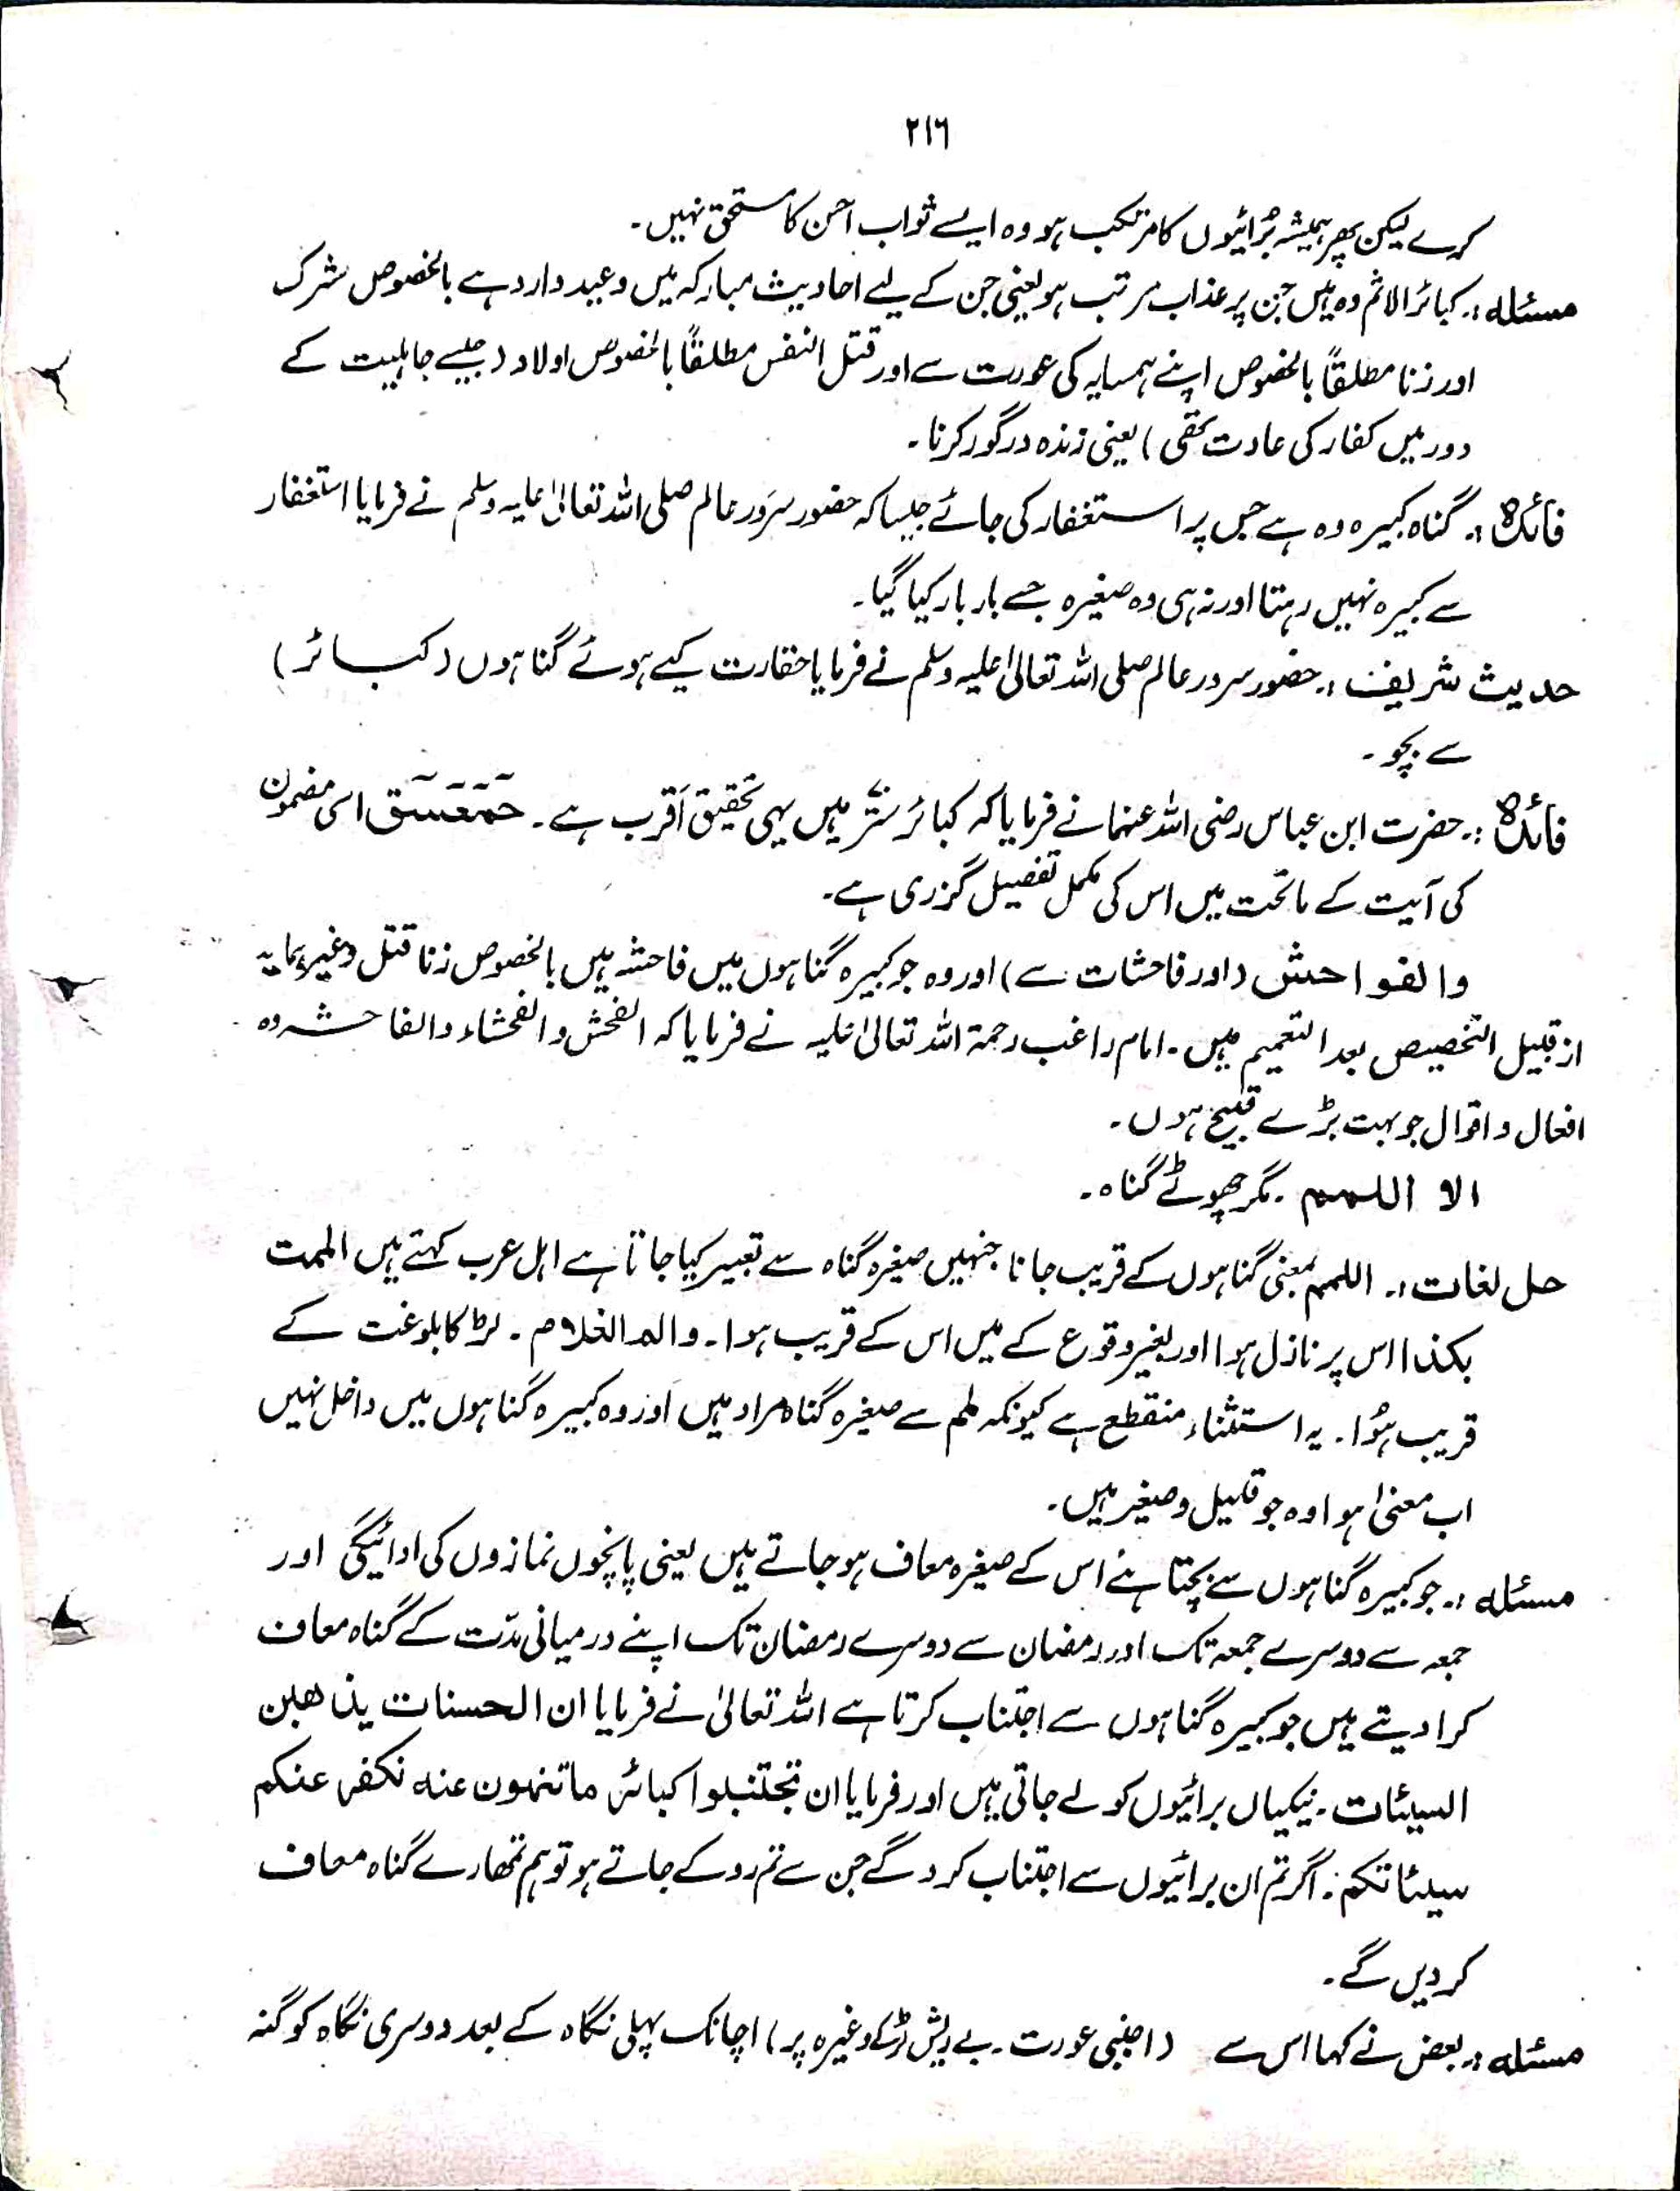 ۲۱۶
کرے لیکن پھر ہمیشہ بُرائیوں کا مرتکب ہو وہ ایسے ثواب احسن کا مستحق نہیں۔
مسئلہ :۔ کبائر الاثم وہ ہیں جن پر عذاب مرتب ہو یعنی جن کے لیے احادیث مبارکہ میں وعید وارد ہے بالخصوص شرک
اور زنا مطلقاً بالخصوص اپنے ہمسایہ کی عورت سے اور قتل النفس مطلقاً بالخصوص اولاد (جیسے جاہلیت کے
دور میں کفار کی عادت تھی) یعنی زندہ درگور کرنا۔
فائدہ :۔ گناہ کبیرہ وہ ہے جس پر استغفار کی جائے جیسا کہ حضور سرَور عالم صلی اللہ تعالیٰ علیہ وسلم نے فرمایا استغفار
سے کبیرہ نہیں رہتا اور نہ ہی وہ صغیرہ جسے بار بار کیا گیا۔
حدیث شریف :۔ حضور سرور عالم صلی اللہ تعالیٰ علیہ وسلم نے فرمایا حقارت کیے ہوئے گناہوں (کبائر)
سے بچو۔
فائدہ :۔ حضرت ابن عباس رضی اللہ عنہما نے فرمایا کہ کبائر ستّر ہیں یہی تحقیق اَقرب ہے۔ حٓمٓعٓسٓقٓ اسی مضمون
کی آیت کے ماتحت میں اس کی مکمل تفصیل گزری ہے۔
والفواحش (اور فاحشات سے) اور وہ جو کبیرہ گناہوں میں فاحشہ ہیں بالخصوص زنا قتل وغیرہما یہ
از قبیل التخصیص بعد التعمیم ہیں۔ امام راغب رحمۃ اللہ تعالیٰ علیہ نے فرمایا کہ الفحش و الفحشاء والفاحشہ وہ
افعال و اقوال جو بہت بڑے قبیح ہوں۔
الا اللمم ۔ مگر چھوٹے گناہ۔
حل لغات :۔ اللمم بمعنی گناہوں کے قریب جانا جنہیں صغیرہ گناہ سے تعبیر کیا جاتا ہے اہل عرب کہتے ہیں الممت
بکذا اس پر نازل ہوا اور بغیر وقوع کے میں اس کے قریب ہوا۔ والم الغلام ۔ لڑکا بلوغت کے
قریب ہُوا۔ یہ استثناء منقطع ہے کیونکہ لمم سے صغیرہ گناہ مراد ہیں اور وہ کبیرہ گناہوں میں داخل نہیں
اب معنیٰ ہوا وہ جو قلیل و صغیر ہیں۔
مسئلہ :۔ جو کبیرہ گناہوں سے بچتا ہے اس کے صغیرہ معاف ہو جاتے ہیں یعنی پانچوں نمازوں کی ادائیگی اور
جمعہ سے دوسرے جمعہ تک اور رمضان سے دوسرے رمضان تک اپنے درمیانی مدّت کے گناہ معاف
کرا دیتے ہیں جو کبیرہ گناہوں سے اجتناب کرتا ہے اللہ تعالیٰ نے فرمایا ان الحسنات یذھبن
السیئات ۔ نیکیاں برائیوں کو لے جاتی ہیں اور فرمایا ان تجتنبوا کبائر ما تنہون عنہ نکفر عنکم
سیئاتکم :۔ اگر تم ان برائیوں سے اجتناب کرو گے جن سے تم روکے جاتے ہو تو ہم تمہارے گناہ معاف
کر دیں گے۔
مسئلہ :۔ بعض نے کہا اس سے (اجنبی عورت۔ بے ریش لڑکے وغیرہ پر) اچانک پہلی نگاہ کے بعد دوسری نگاہ کو گنہ